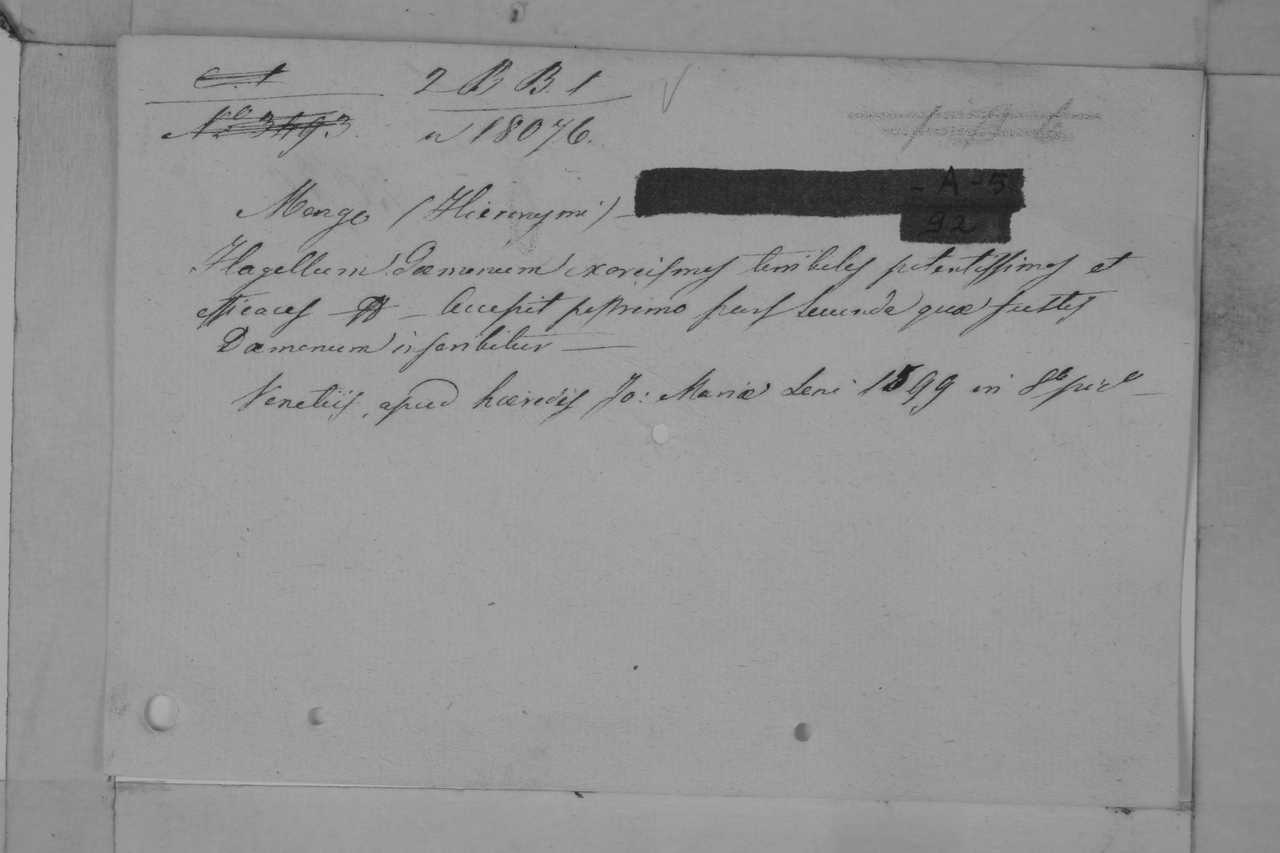 C. 1 2 B B. 1
No. 3493. n 18076.
- A - 5
Mengo (Hieronymi) —
92
Flagellum Dæmonum exorcismos terribiles potentissimos et
efficaces — Accepit postremo pars secunda quæ fustis
Dæmonum inscribitur —
Venetiis, apud hæredes Jo: Mariæ Leni 1599 in 8º